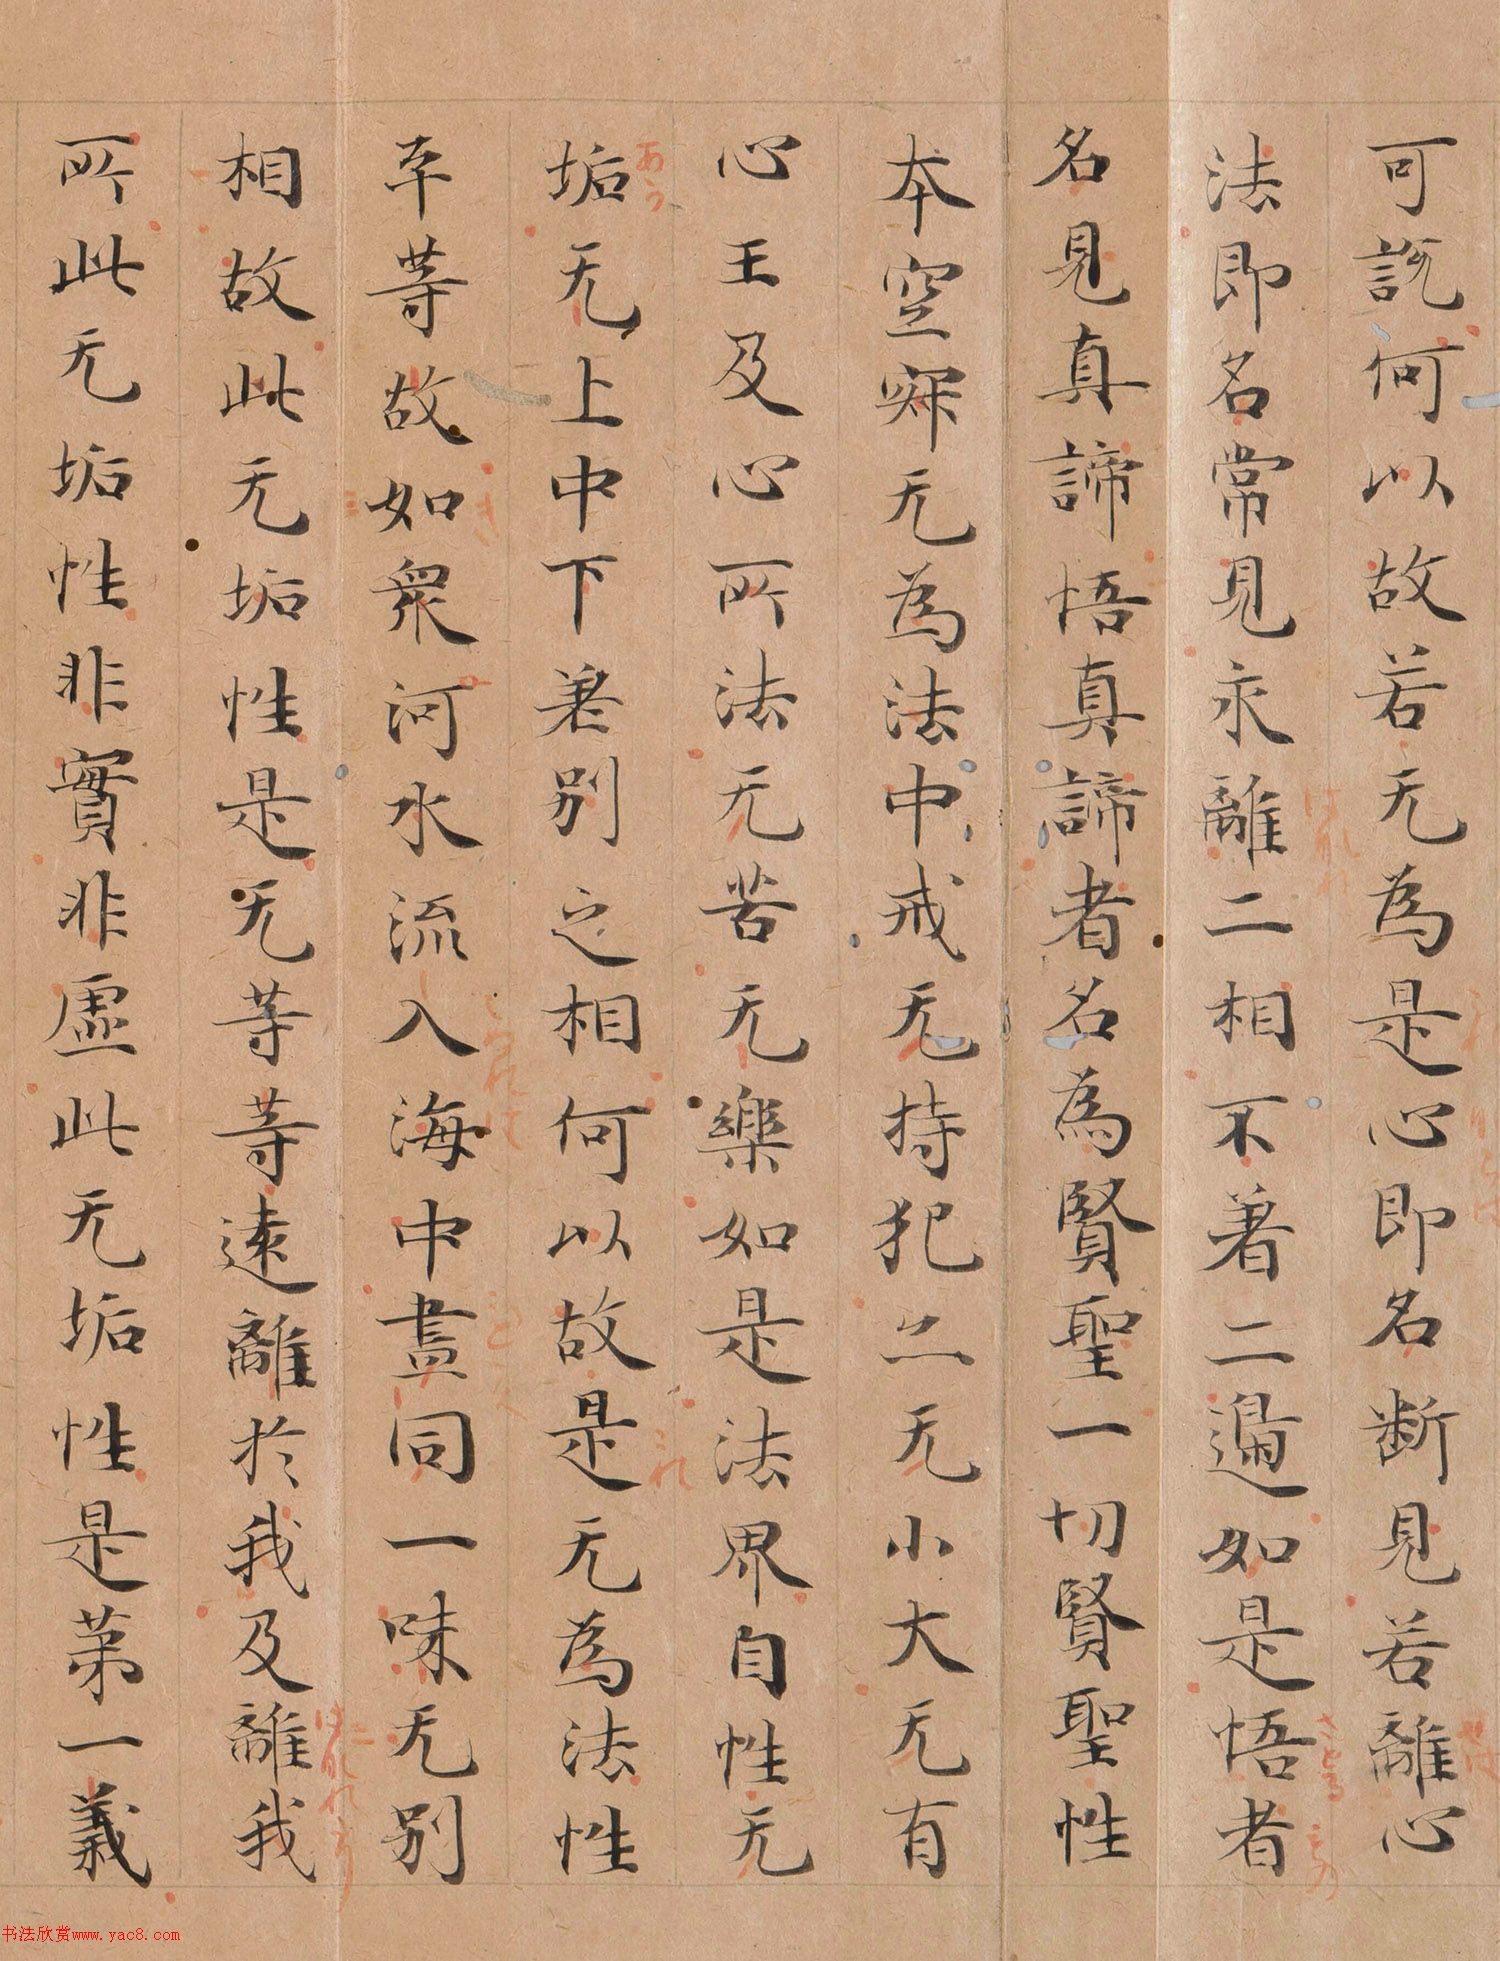 可説何以故若无為是心即名断見若離心
法即名常見永離二相不著二邊如是悟者
名見真諦悟真諦者名為賢聖一切賢聖性
本空寂无為法中戒无持犯亦无小大无有
心王及心所法无苦无樂如是法界自性无
垢无上中下差别之相何以故是无為法性
平等故如衆河水流入海中盡同一味无别
相故此无垢性是无等等遠離於我及離我
所此无垢性非實非虚此无垢性是第一義
书法欣赏www.yac8.com